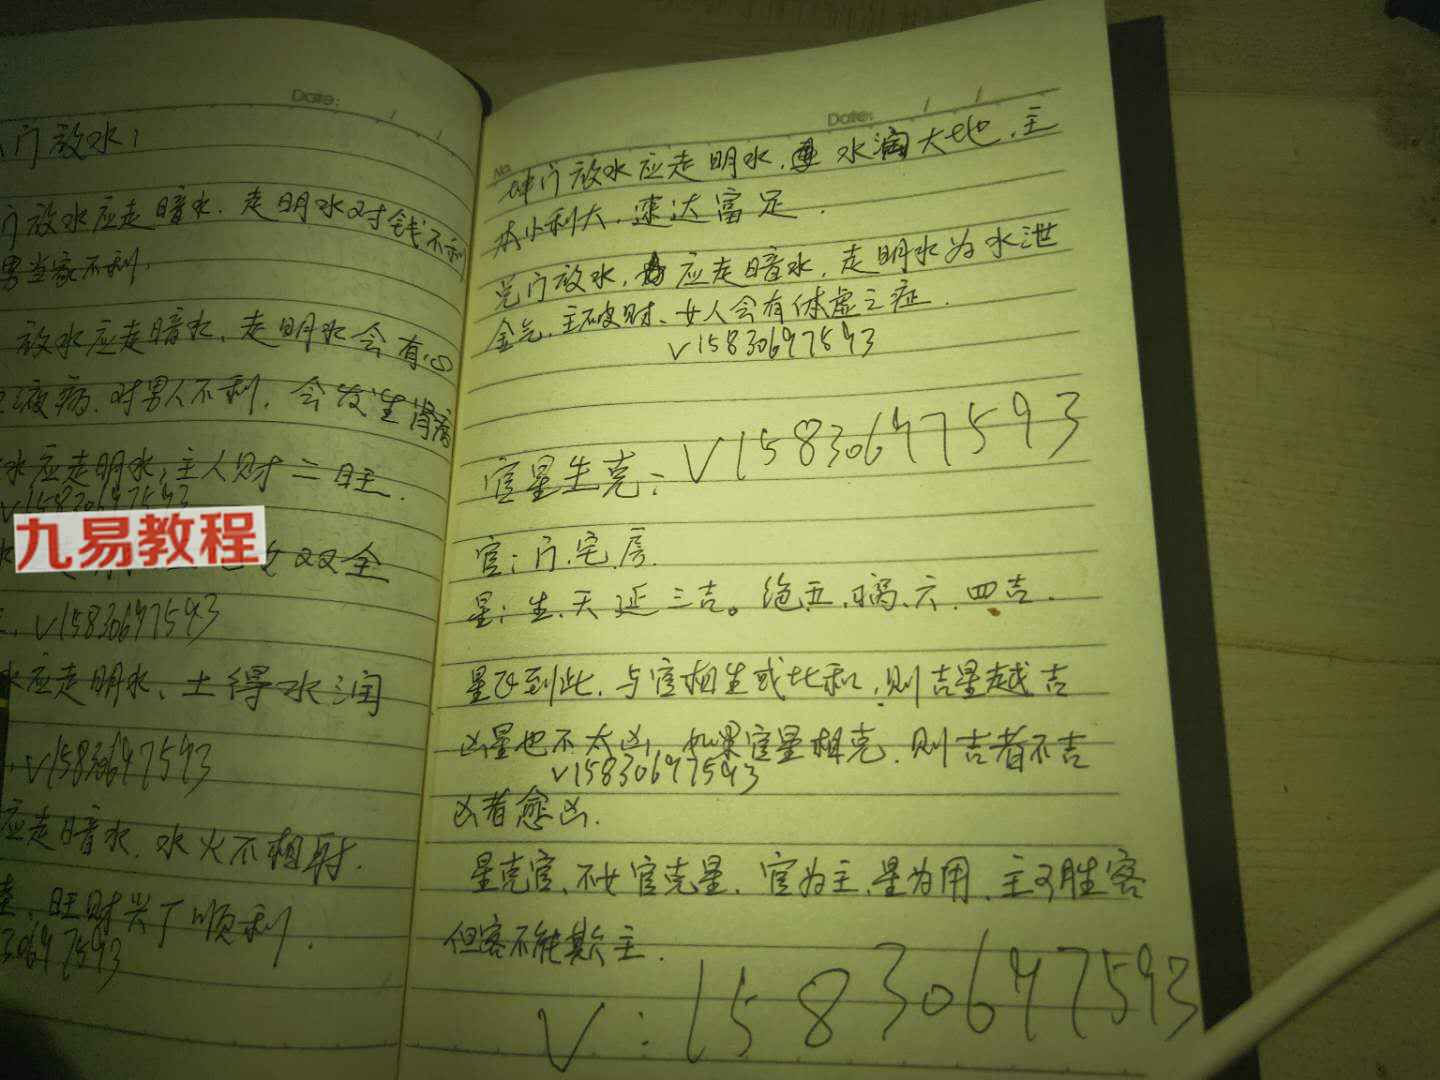 Date:
门放水！
门放水应走暗水．走明水对钱不利
男当家不利．
放水应走暗水．走明水会有心
液病．对男人不利．会发生肾病
水应走明水，主人财二旺．
V15830697593
九易教程
女双全
V15830697593
水应走明水、土得水润
V15830697593
应走暗水．水火不相射．
旺财兴丁顺利．
30697593
Date:
No.
坤门放水应走明水． 水润大地．主
本小利大．速达富足．
兑门放水， 应走暗水．走明水为水泄
金气，主破财、女人会有体虚之症．
V15830697593
官星生克： V15830697593
官：门．宅．房．
星：生、天 延 三吉。绝五．祸、六．四吉．
星飞到此．与官相生或比和，则吉星越吉
凶星也不太凶，如果官星相克，则吉者不吉
V15830697593
凶者愈凶．
星克官、不如官克星．官为主，星为用．主可胜客
但客不能欺主．
V：15830697593